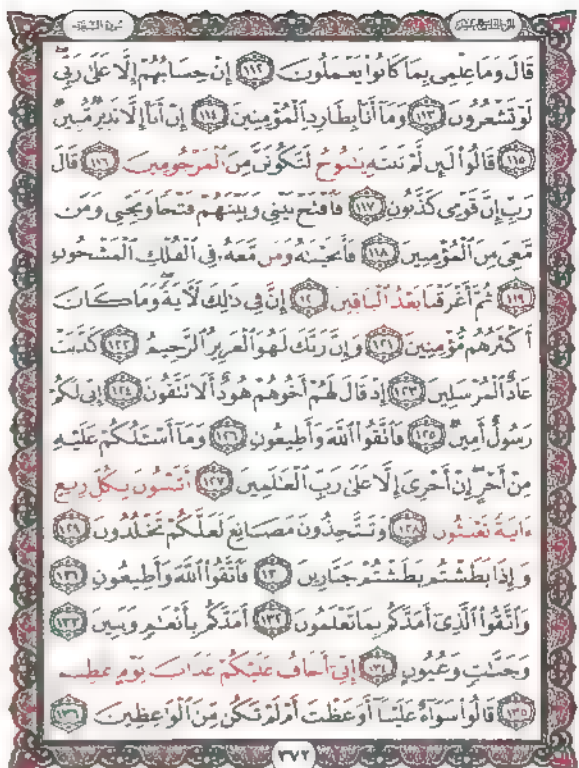 سورة الشعراء
الجزء التاسع عشر
قَالَ وَمَا عِلْمِى بِمَا كَانُوا۟ يَعْمَلُونَ ١١٢ إِنْ حِسَابُهُمْ إِلَّا عَلَىٰ رَبِّى
لَوْ تَشْعُرُونَ ١١٣ وَمَآ أَنَا۠ بِطَارِدِ ٱلْمُؤْمِنِينَ ١١٤ إِنْ أَنَا۠ إِلَّا نَذِيرٌ مُّبِينٌ
١١٥ قَالُوا۟ لَئِن لَّمْ تَنتَهِ يَـٰنُوحُ لَتَكُونَنَّ مِنَ ٱلْمَرْجُومِينَ ١١٦ قَالَ
رَبِّ إِنَّ قَوْمِى كَذَّبُونِ ١١٧ فَٱفْتَحْ بَيْنِى وَبَيْنَهُمْ فَتْحًا وَنَجِّنِى وَمَن
مَّعِىَ مِنَ ٱلْمُؤْمِنِينَ ١١٨ فَأَنجَيْنَـٰهُ وَمَن مَّعَهُۥ فِى ٱلْفُلْكِ ٱلْمَشْحُونِ
١١٩ ثُمَّ أَغْرَقْنَا بَعْدُ ٱلْبَاقِينَ ١٢٠ إِنَّ فِى ذَٰلِكَ لَـَٔايَةً وَمَا كَانَ
أَكْثَرُهُم مُّؤْمِنِينَ ١٢١ وَإِنَّ رَبَّكَ لَهُوَ ٱلْعَزِيزُ ٱلرَّحِيمُ ١٢٢ كَذَّبَتْ
عَادٌ ٱلْمُرْسَلِينَ ١٢٣ إِذْ قَالَ لَهُمْ أَخُوهُمْ هُودٌ أَلَا تَتَّقُونَ ١٢٤ إِنِّى لَكُمْ
رَسُولٌ أَمِينٌ ١٢٥ فَٱتَّقُوا۟ ٱللَّهَ وَأَطِيعُونِ ١٢٦ وَمَآ أَسْـَٔلُكُمْ عَلَيْهِ
مِنْ أَجْرٍ إِنْ أَجْرِىَ إِلَّا عَلَىٰ رَبِّ ٱلْعَـٰلَمِينَ ١٢٧ أَتَبْنُونَ بِكُلِّ رِيعٍ
ءَايَةً تَعْبَثُونَ ١٢٨ وَتَتَّخِذُونَ مَصَانِعَ لَعَلَّكُمْ تَخْلُدُونَ ١٢٩
وَإِذَا بَطَشْتُم بَطَشْتُمْ جَبَّارِينَ ١٣٠ فَٱتَّقُوا۟ ٱللَّهَ وَأَطِيعُونِ ١٣١
وَٱتَّقُوا۟ ٱلَّذِىٓ أَمَدَّكُم بِمَا تَعْلَمُونَ ١٣٢ أَمَدَّكُم بِأَنْعَـٰمٍ وَبَنِينَ ١٣٣
وَجَنَّـٰتٍ وَعُيُونٍ ١٣٤ إِنِّىٓ أَخَافُ عَلَيْكُمْ عَذَابَ يَوْمٍ عَظِيمٍ
١٣٥ قَالُوا۟ سَوَآءٌ عَلَيْنَآ أَوَعَظْتَ أَمْ لَمْ تَكُن مِّنَ ٱلْوَٰعِظِينَ ١٣٦
٣٧٢